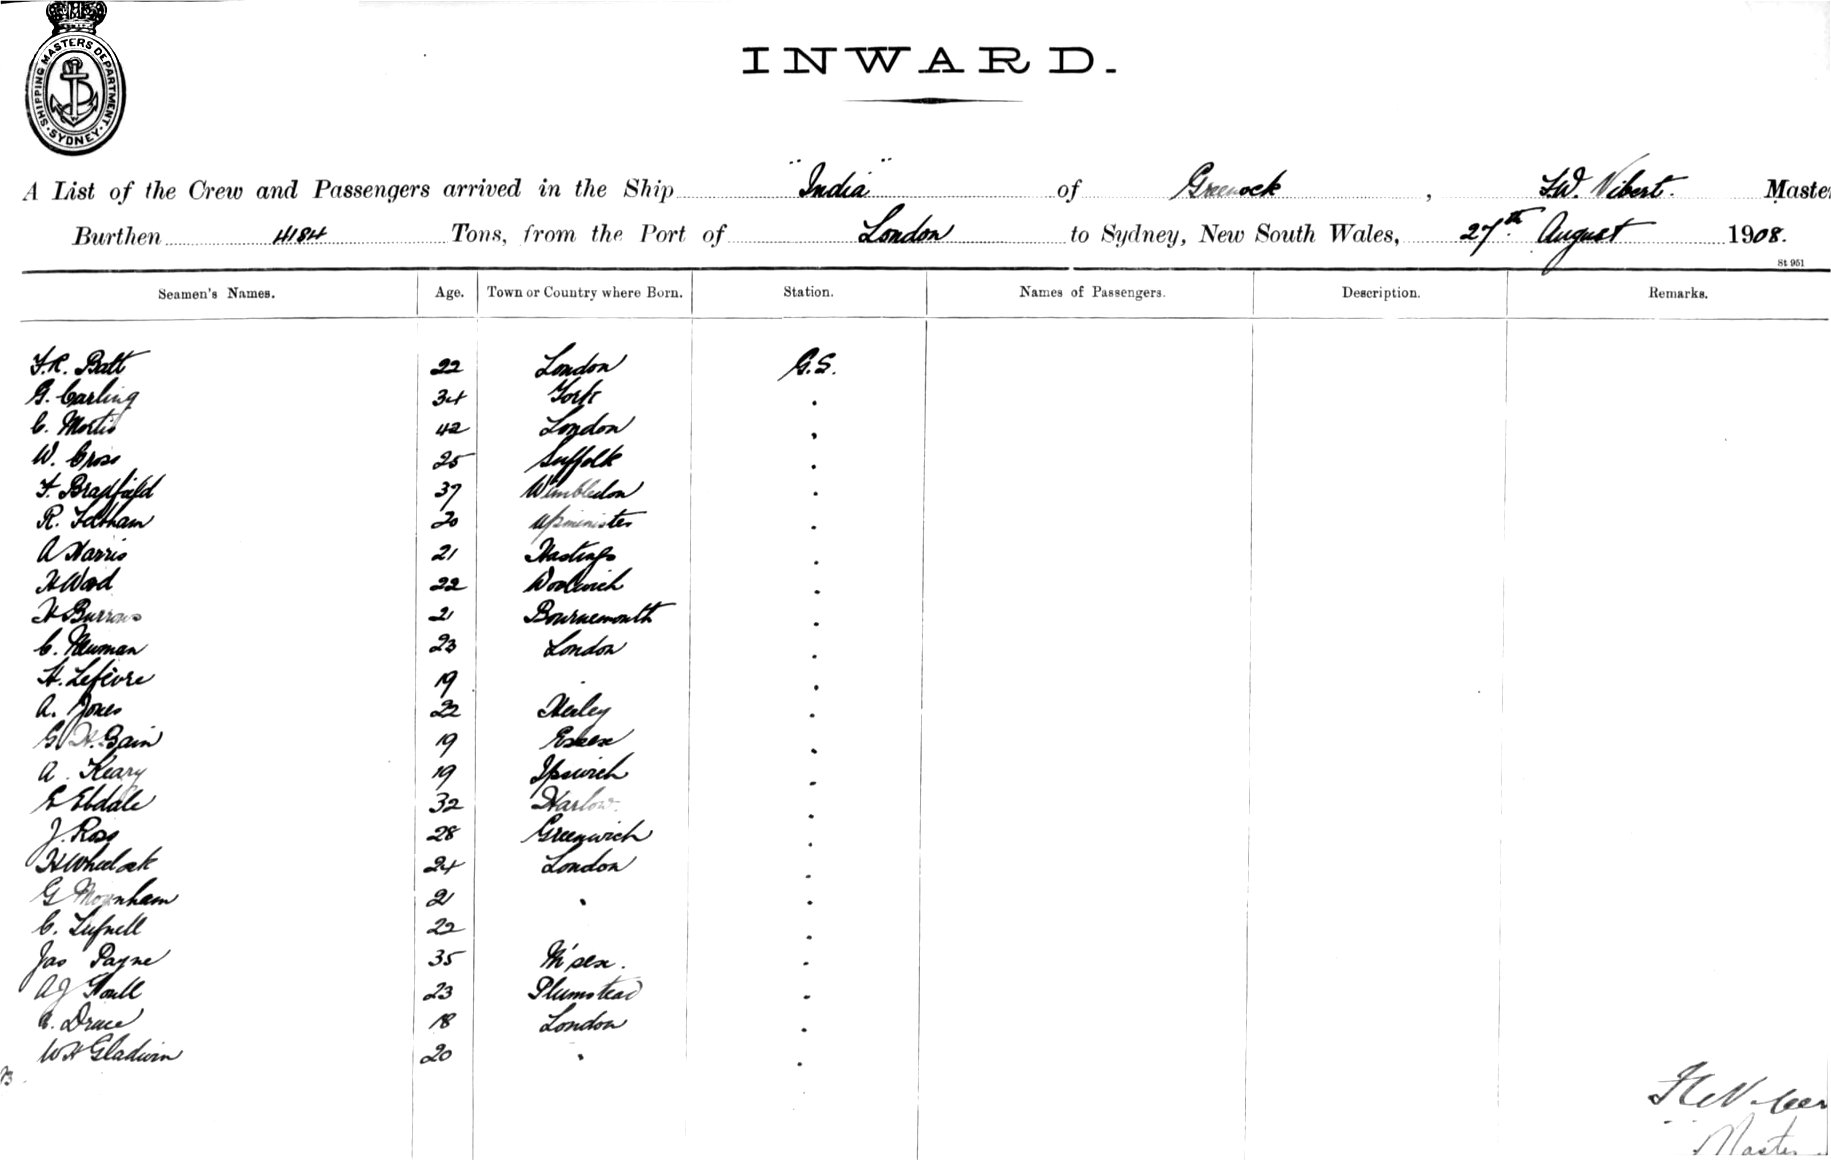 SHIPPING MASTERS DEPARTMENT. SYDNEY.
INWARD.
A List of the Crew and Passengers arrived in the Ship "India" of Greenock, F.W. Vibert. Maste
Burthen 4184 Tons, from the Port of London to Sydney, New South Wales, 27th August 1908.
St 951
Seamen's Names. Age. Town or Country where Born. Station. Names of Passengers. Description. Remarks.
F.R. Batt 22 London G.S.
G. Carling 34 York "
C. 42 London "
W. Cross 25 Suffolk "
F. Bradfield 37 Wimbledon "
R. Feltham 20 Upminster "
A Harris 21 Hastings "
H Wood 22 Woolwich "
H Burrows 21 Bournemouth "
C. Newman 23 London "
H. Lefevre 19 " "
A. Jones 22 "
G H. Bain 19 Essex "
A. Keary 19 Ipswich "
E Ebdale 32 Harlow "
J. Ross 28 Greenwich "
H Wheelock 24 London "
G 21 " "
C. Tufnell 22 "
Jas Payne 35 M'sex. "
A J 23 Plumstead "
Druce 18 London "
W H Gladwin 20 " "
23
Master